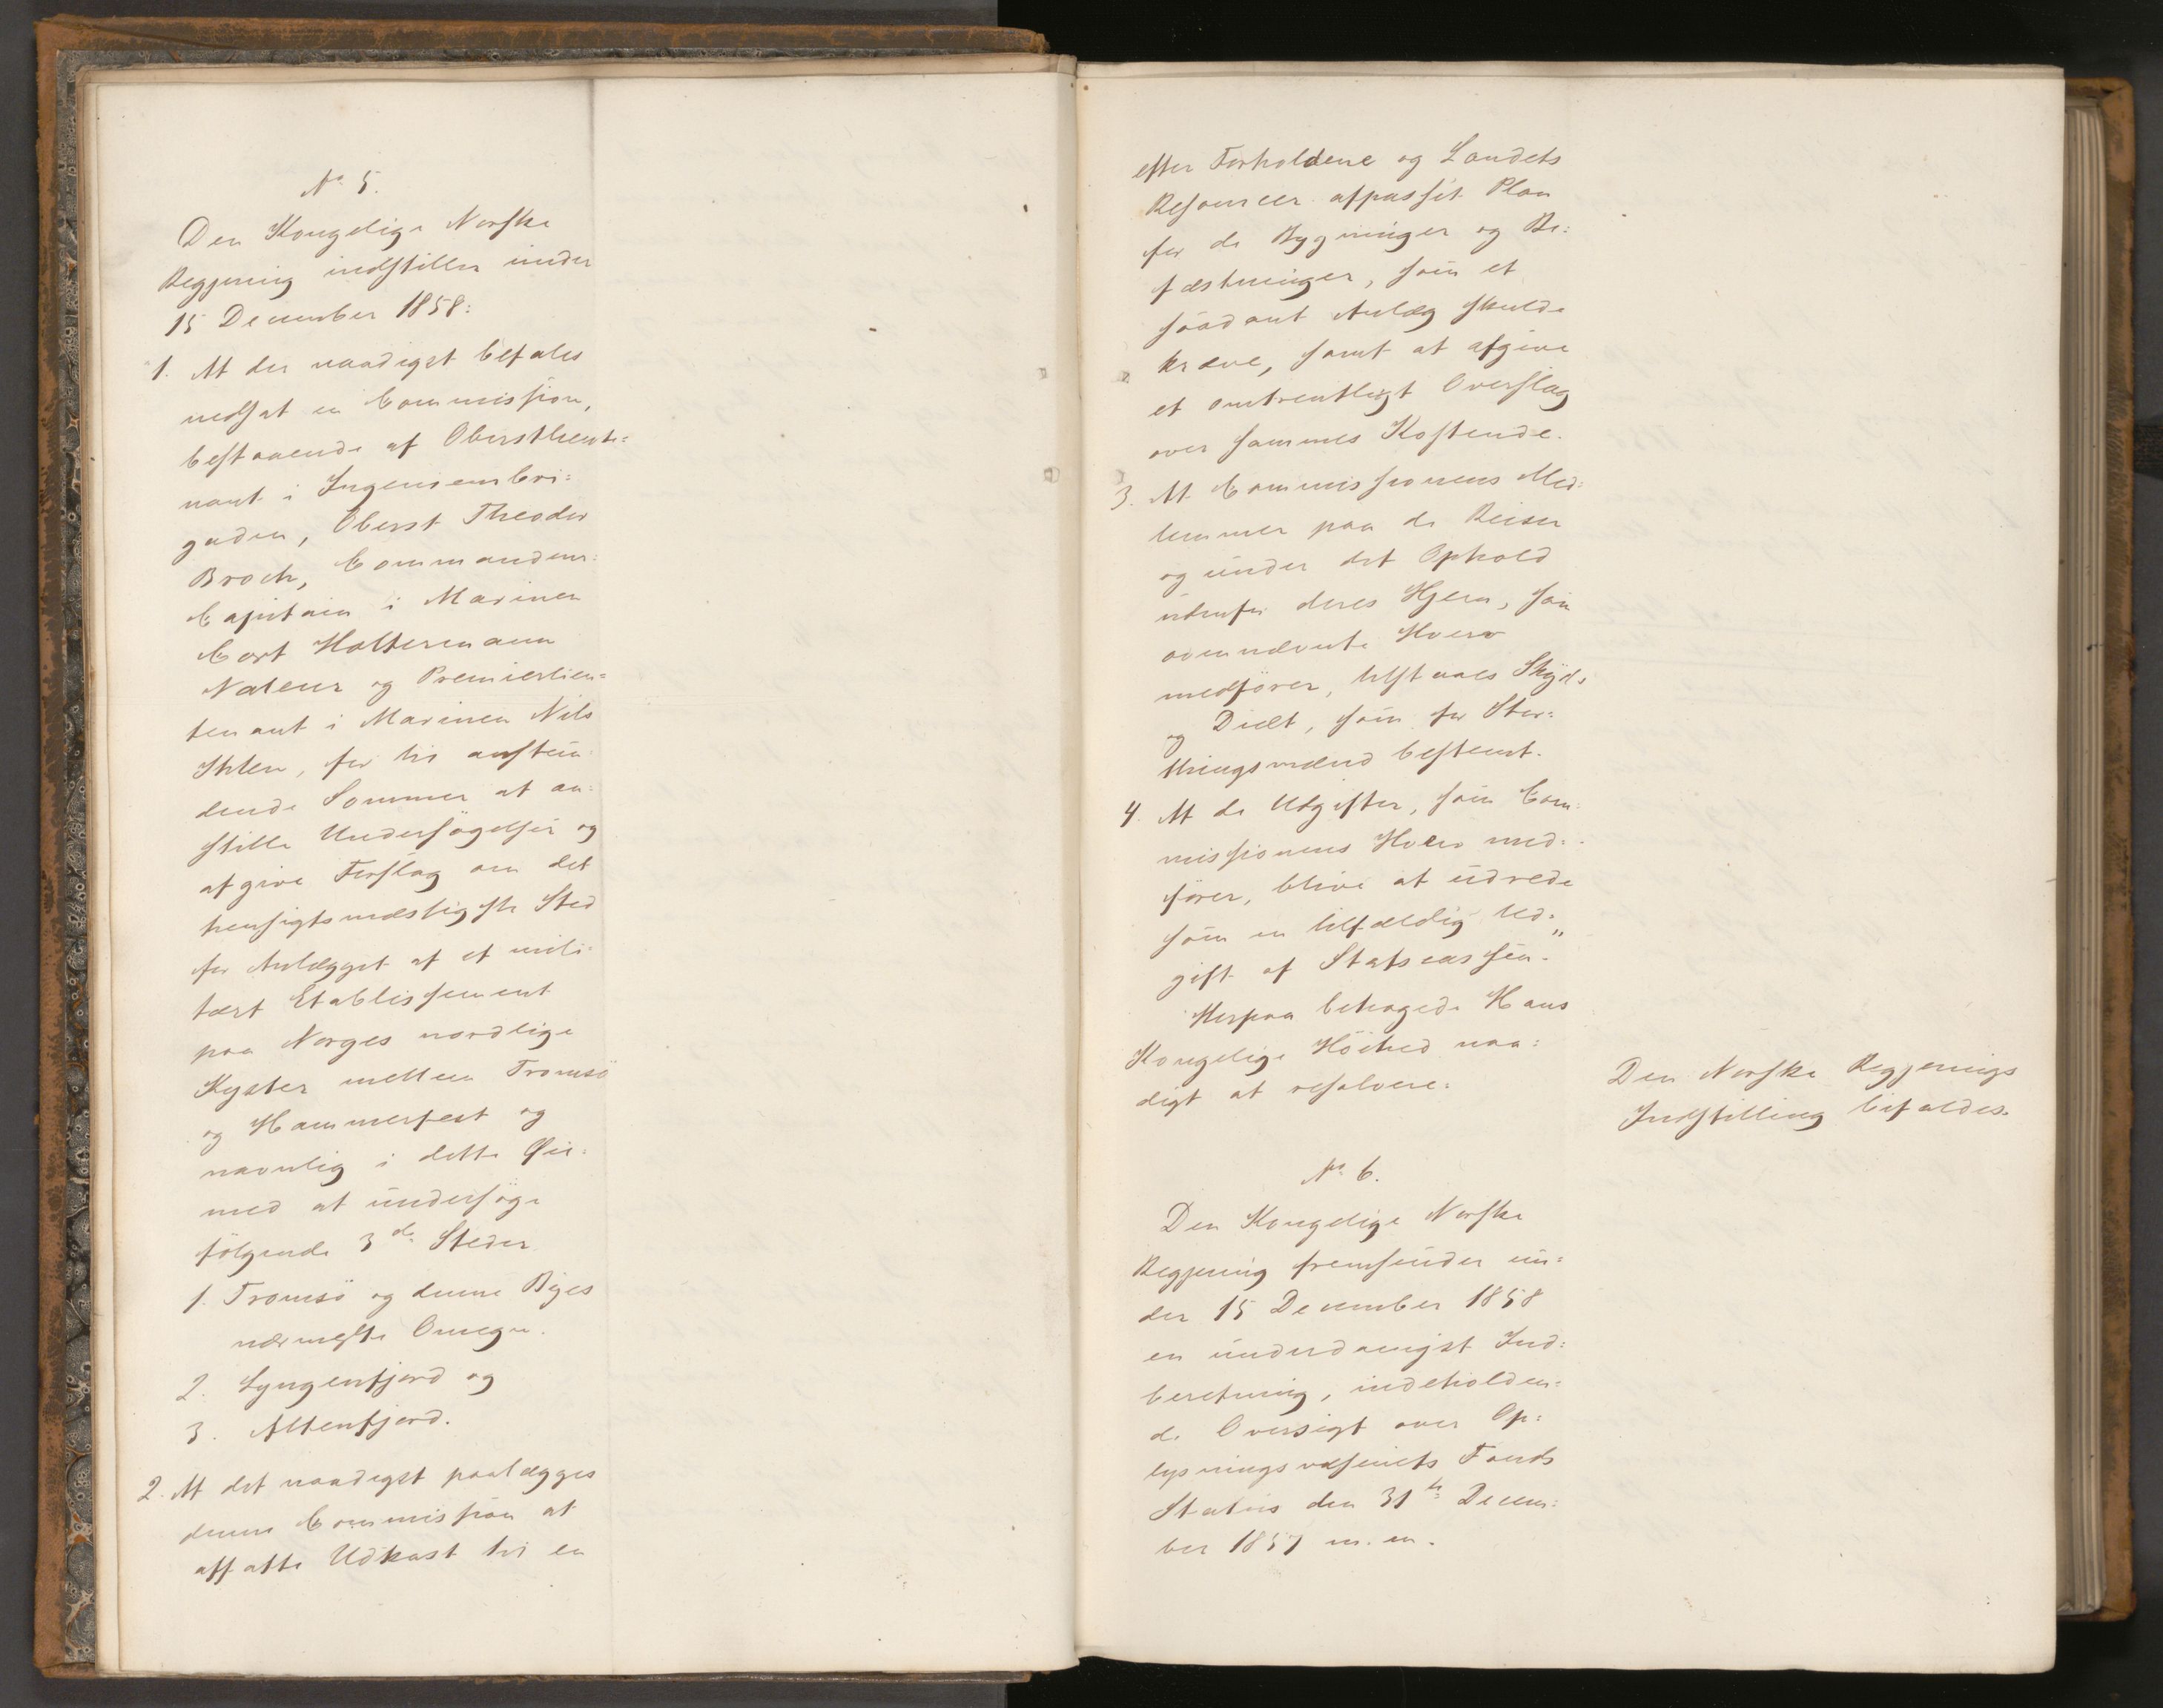 No 5.
Den Kongelige Norske
Regjering indstiller under
15 December 1858:
1. At der naadigst befales
nedsat en Commission,
bestaaende af Oberstlieute=
nant i Ingenieurbri=
gaden, Oberst Theodor
Broch, Commandeur=
Capitain i Marinen
Cort Holtermann
Nateur og Premierlieu=
tenant i Marinen Nils
Ihlen, for tis anstun=
dende Sommer at an=
stille Undersögelser og
afgive Forslag om det
hensigtsmæssigste Sted
for Anlægget af et mili=
tært Etablissement
paa Norges nordlige
Kyster mellem Tromsö
og Hammerfest og
navnlig i dette Øie=
med at undersöge
fölgende 3de Steder
1. Tromsö og denne Byes
nærmeste Omegn.
2. Lyngenfjord og
3. Altenfjord.
2. At det naadigst paalægges
denne Commission at
affatte Udkast til en
efter Forholdene og Landets
Resourcer afpasset Plan
for de Bygninger og Be=
fæstninger, som et
saadant Anlæg skulde
kræve, samt at afgive
et omtrentligt Overslag
over sammes Kostende.
3. At Commissionens Med=
lemmer paa de Reiser
og under det Ophold
udenfor deres Hjem, som
ovennævnte Hverv
medförer, tilstaaes Skyds
og Diæt, som for Stor=
thingsmænd bestemt.
4. At de Udgifter, som Com=
missionens Hverv med=
förer, blive at udrede
som en tilfældig Ud=
gift af Statscassen.
Herpaa behagede Hans
Kongelige Höihed naa=
digt at resolvere:
Den Norske Regjerings
Indstilling bifaldes.
No 6.
Den Kongelige Norske
Regjering fremsender un=
der 15 December 1858
en underdanigst Ind=
beretning, indeholden=
de Oversigt over Op=
lysningsvæsenets Fonds
Status den 31te Decem=
ber 1857 m. m.